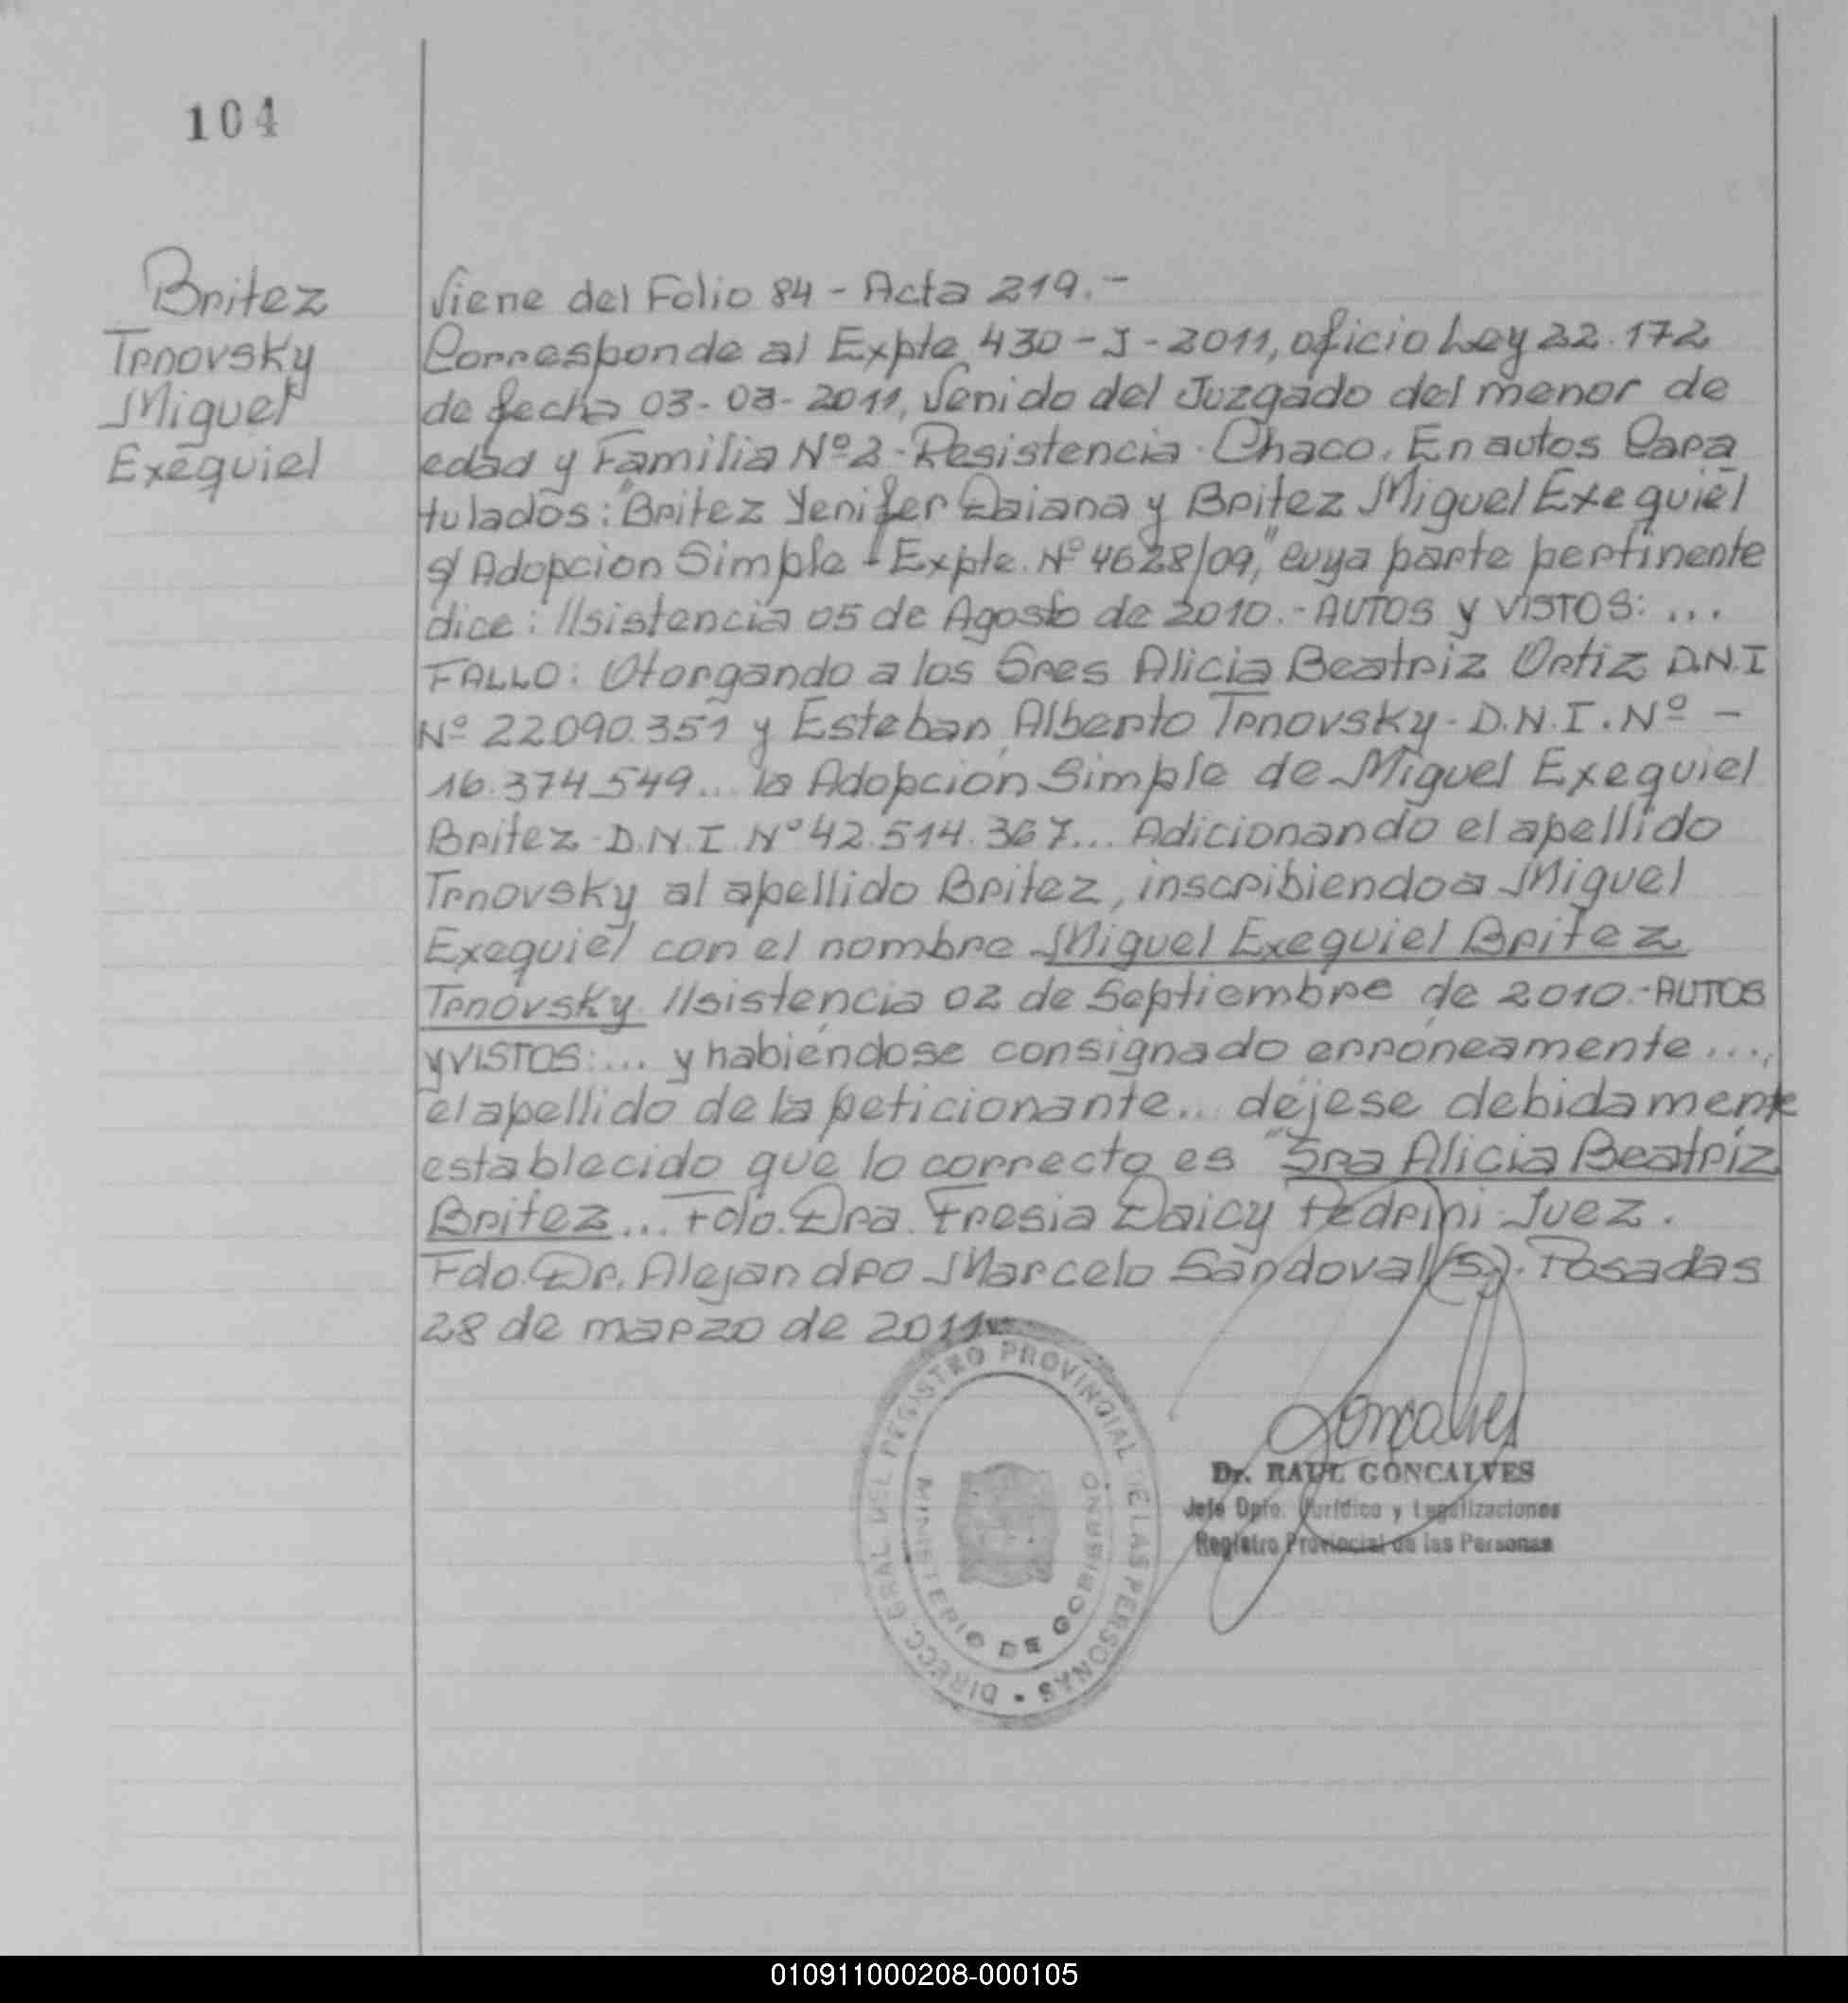 104
Britez
Trnovsky
Miguel
Exequiel
Viene del Folio 84 - Acta 219.-
Corresponde al Expte 430-J-2011, oficio Ley 22.172
de fecha 03-03-2011, Venido del Juzgado del menor de
edad y Familia Nº2-Resistencia-Chaco. En autos Cara
tulados: "Britez Yenifer Daiana y Britez Miguel Exequiel
s/ Adopcion Simple - Expte. Nº 4628/09," cuya parte pertinente
dice: //sistencia 05 de Agosto de 2010.- AUTOS y VISTOS: ...
FALLO: Otorgando a los Sres Alicia Beatriz Ortiz D.N.I
Nº 22.090.351 y Esteban Alberto Trnovsky - D.N.I. Nº -
16.374.549... la Adopción Simple de Miguel Exequiel
Britez D.N.I. Nº 42.514.367... Adicionando el apellido
Trnovsky al apellido Britez, inscribiendo a Miguel
Exequiel con el nombre Miguel Exequiel Britez
Trnovsky //sistencia 02 de Septiembre de 2010.-AUTOS
y VISTOS: ... y habiéndose consignado erróneamente ...,
el apellido de la peticionante... déjese debidamente
establecido que lo correcto es "Sra Alicia Beatriz
Britez... Fdo. Dra. Fresia Daicy Pedrini Juez.
Fdo. Dr. Alejandro Marcelo Sandoval (S). Posadas
28 de marzo de 2011
DIRECC. GRAL DEL REGISTRO PROVINCIAL DE LAS PERSONAS
MINISTERIO DE GOBIERNO
Goncalves
Dr. RAUL GONCALVES
Jefe Dpto. Jurídico y Legalizaciones
Registro Provincial de las Personas
010911000208-000105